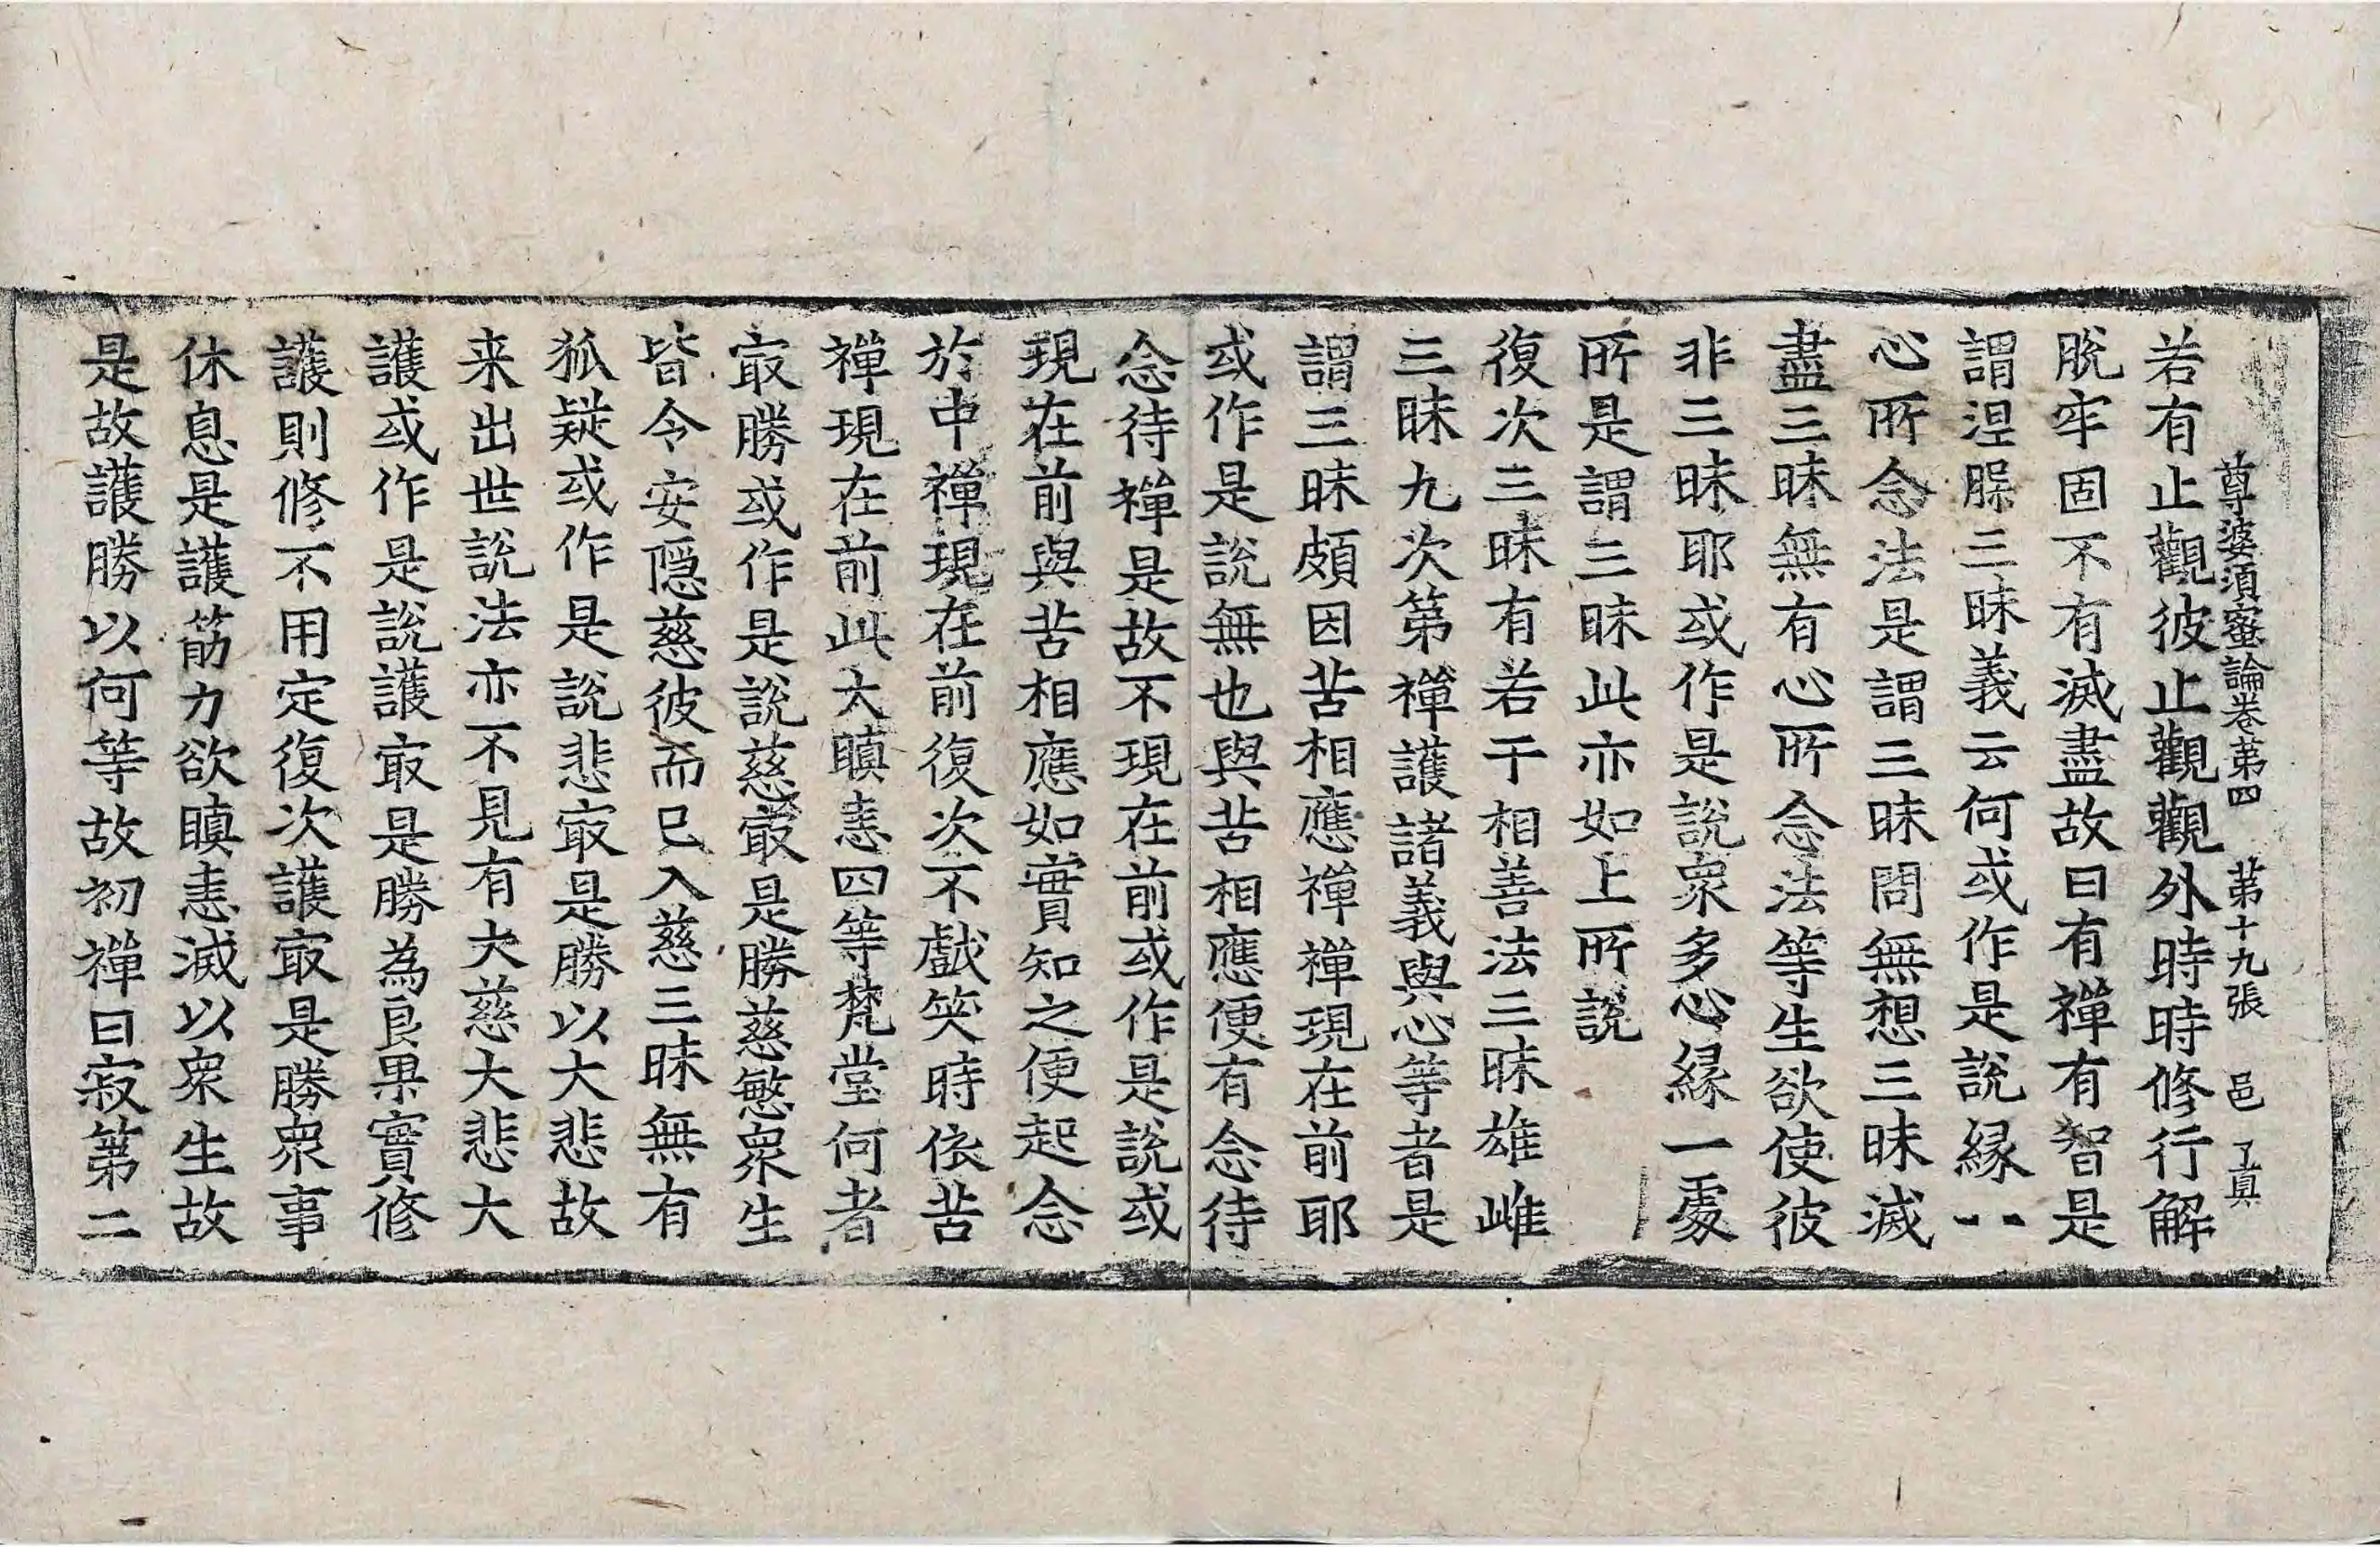 尊婆須蜜論卷第四　第十九張　邑　了眞
若有止觀彼止觀觀外時時修行解
脫牢固不有滅盡故曰有禪有智是
謂涅脲三昧義云何或作是說緣一一
心所念法是謂三昧問無想三昧滅
盡三昧無有心所念法等生欲使彼
非三昧耶或作是說衆多心緣一處
所是謂三昧此亦如上所說
復次三昧有若干相善法三昧雄雌
三昧九次第禪護諸義與心等者是
謂三昧頗因苦相應禪禪現在前耶
或作是說無也與苦相應便有念待
念待禪是故不現在前或作是說或
現在前與苦相應如實知之便起念
於中禪現在前復次不戲笑時依苦
禪現在前此大瞋恚四等梵堂何者
㝡勝或作是說慈㝡是勝慈愍衆生
皆令安隱慈彼而已入慈三昧無有
狐疑或作是說悲㝡是勝以大悲故
来出世說法亦不見有大慈大悲大
護或作是說護㝡是勝為良果實修
護則修不用定復次護㝡是勝衆事
休息是護筋力欲瞋恚滅以衆生故
是故護勝以何等故初禪曰寂第二